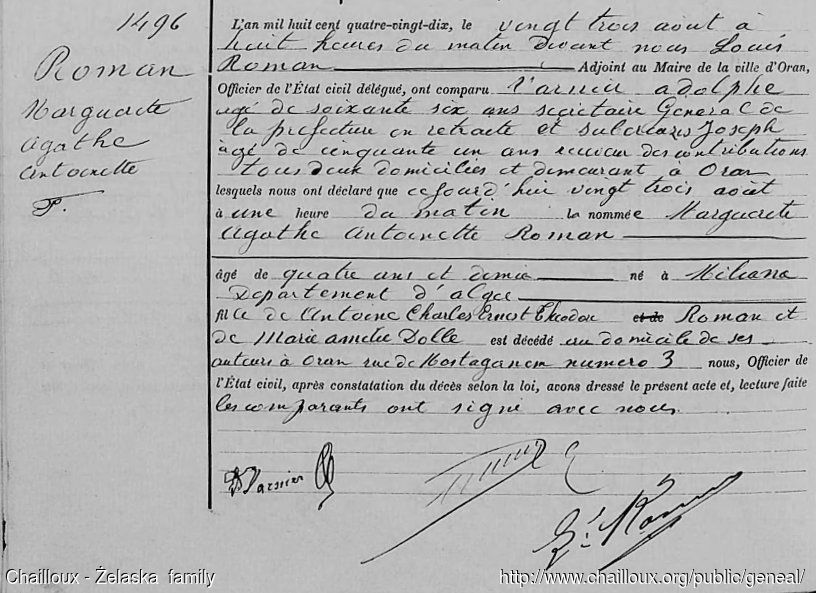 1496
Roman
Marguerite
Agathe
Antoinette
F.
L'an mil huit cent quatre-vingt-dix, le vingt trois aout à
huit heures du matin devant nous Louis
Roman Adjoint au Maire de la ville d'Oran,
Officier de l'État civil délégué, ont comparu Varnier adolphe
agé de soixante six ans secrétaire Général de
la préfecture en retraite et Joseph
agé de cinquante un ans receveur des contributions
tous deux domiciliés et demeurant à Oran
lesquels nous ont déclaré que cejourd'hui vingt trois aout
à une heure du matin la nommée Marguerite
Agathe Antoinette Roman
âgé de quatre ans et demie né à Miliana
Département d'alger
fille de Antoine Charles Ernest Théodore et de Roman et
de Marie amélie Dolle est décédé au domicile de ses
auteurs à Oran rue de Mostaganem numero 3 nous, Officier de
l'État civil, après constatation du décès selon la loi, avons dressé le présent acte et, lecture faite
les comparants ont signé avec nous
Varnier
Roman
Chailloux - Żelaska family
http://www.chailloux.org/public/geneal/